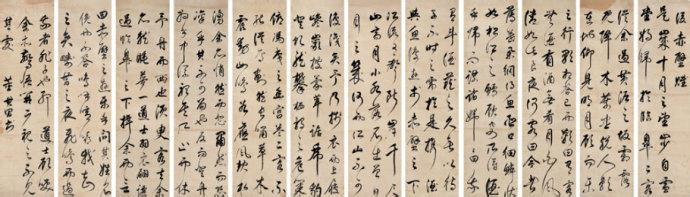 後赤壁賦
是歲十月之望步自雪
堂將歸於臨皋二客
從余過黃泥之坂霜露
既降木葉盡脫人影
在地仰見明月顧而樂
之行歌相答已而歎曰有客
無酒有酒無肴月白風
清如此良夜何客曰今者
薄暮舉網得魚巨口細鱗狀
如松江之鱸顧安所得酒
乎歸而謀諸婦婦曰我
有斗酒藏之久矣以待
子不時之需於是攜酒
與魚復遊於赤壁之下
江流有聲斷岸千尺
山高月小水落石出曾日
月之幾何而江山不可
復識矣予乃攝衣而上履
巉巖披蒙茸踞虎豹
登虬龍攀栖鶻之危巢
俯馮夷之幽宮蓋二客不
能從焉劃然長嘯草木
震動山鳴谷應風起水
涌予亦悄然而悲肅然而恐
凜乎其不可留也反而登舟
放乎中流聽其所止而休
予舟而西也須臾客去予
亦就睡夢一道士羽衣翩躚
過臨皋之下揖余而言
曰赤壁之遊樂乎問其姓名
俛而不答嗚呼噫嘻我知
之矣疇昔之夜飛鳴而過
我者非子也耶道士顧笑
余亦驚悟開戶視之不見
其處 董其昌書